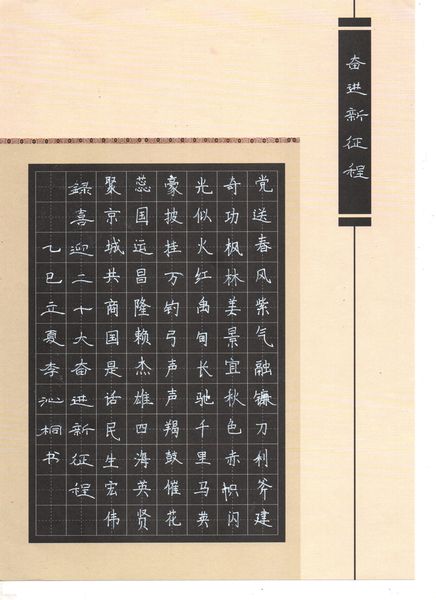 奋进新征程
党送春风紫气融镰刀利斧建
奇功枫林美景宜秋色赤帜闪
光似火红禹甸长驰千里马英
豪披挂万钧弓声声羯鼓催花
蕊国运昌隆赖杰雄四海英贤
聚京城共商国是话民生宏伟
録喜迎二十大奋进新征程
乙巳立夏李沁桐书